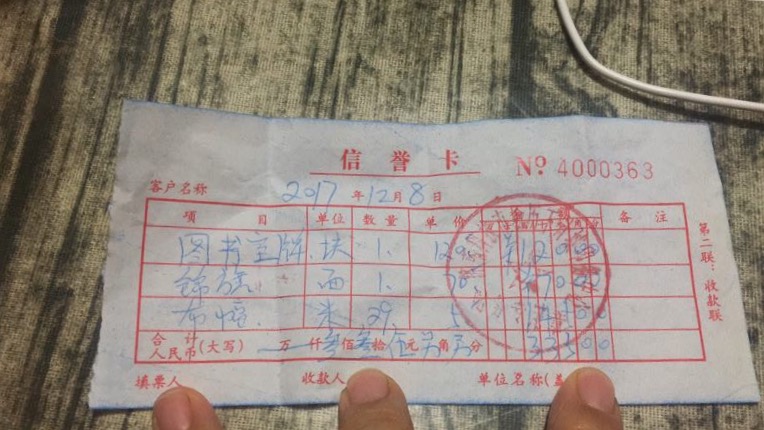 信誉卡 № 4000363
客户名称 2017年12月8日
项目 单位 数量 单价 金额 备注
图书室牌 块 1. 120 ¥12000
锦旗 面 1. 70 7000
布幅 米 29 5 14500
合计人民币(大写) 万 仟 叁佰叁拾伍元 角 分 33500
填票人 收款人 单位名称(盖
第二联:收款联